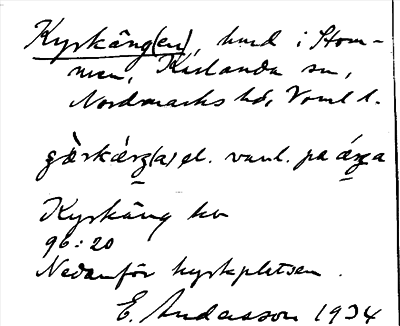 Kyrkäng(en), hmd i Stom-
men, Karlanda sn,
Nordmarks hd, Vrml l.
el. vanl. på
Kyrkäng hv
96:20
Nedanför kyrkplatsen.
E. Andersson 1934